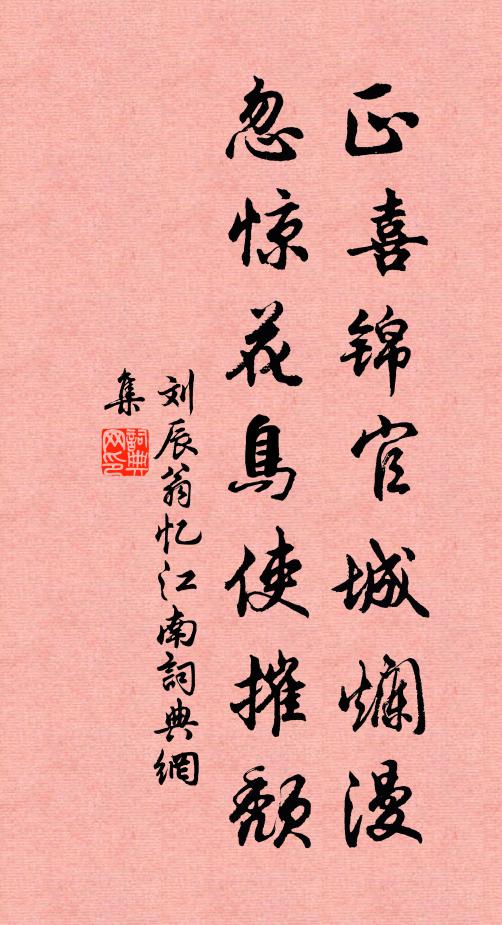 正喜锦官城烂漫
忽惊花鳥使摧颓
刘辰翁忆江南詞典網
集
詞典
网印